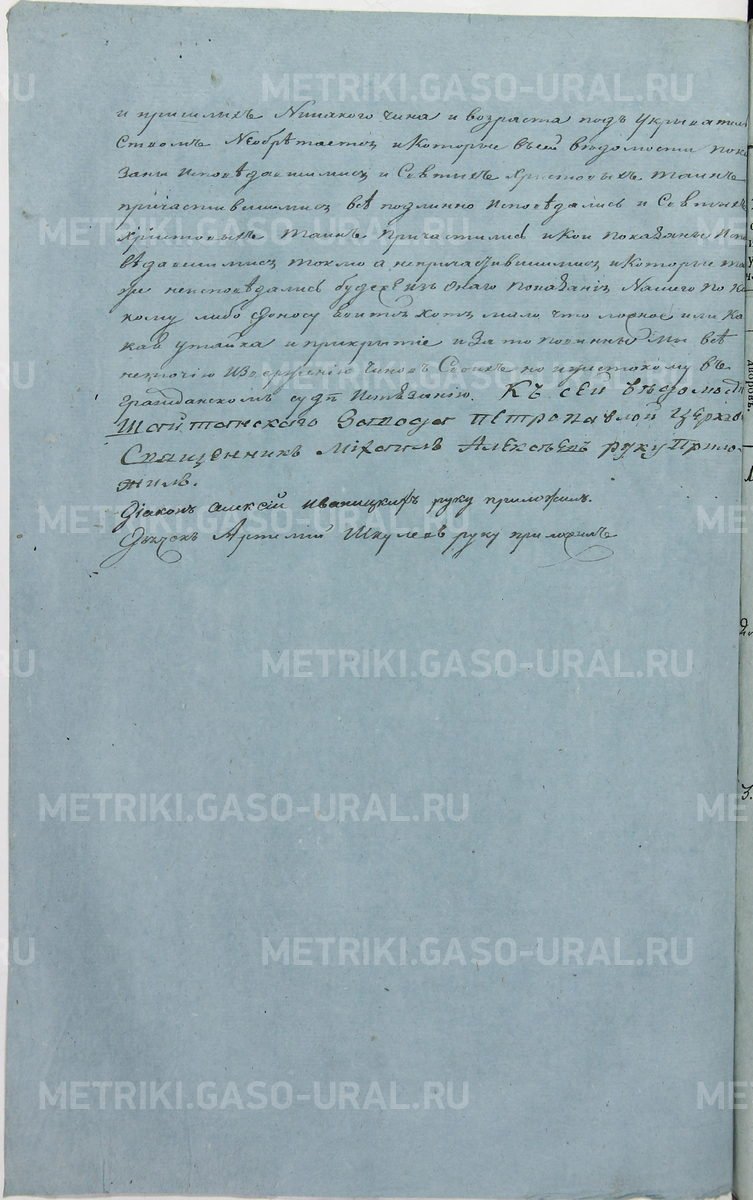 и пришлихъ Никакого чина и возраста подъ укриватель
Ствомъ Необрѣтаетца иКоторые въсей вѣдомости пока
Заны исповѣдавшимис и Святыхъ Христовыхъ Таинъ
причастившимис всѣ подлинно исповѣдались и Святыхъ
Христовыхъ Таинъ причастились икои показаны Испо
вѣдавшимис токмо а непричастившимис икоторые та
же неисповѣдались будежъ изъ онаго показаниі Нашего по ка
кому либо доносу явится хотя мало что ложное или ка
кая утайка и прикрытіе иЗа то повинны Мы всѣ
неточію Изверженію Чиновъ Своихъ но ижестокому въ
гражданскомъ судѣ Истязанію. Къ сей вѣдомости
Шайтанского Завода Петропавлой церкви
Священникъ Михаилъ Алексѣевъ руку Прило
жилъ.
Діаконъ алексій иваницкихъ руку приложилъ.
Дьячекъ Артемий Шкулевъ руку приложилъ
2.
3.
дворовъ
METRIKI.GASO-URAL.RU